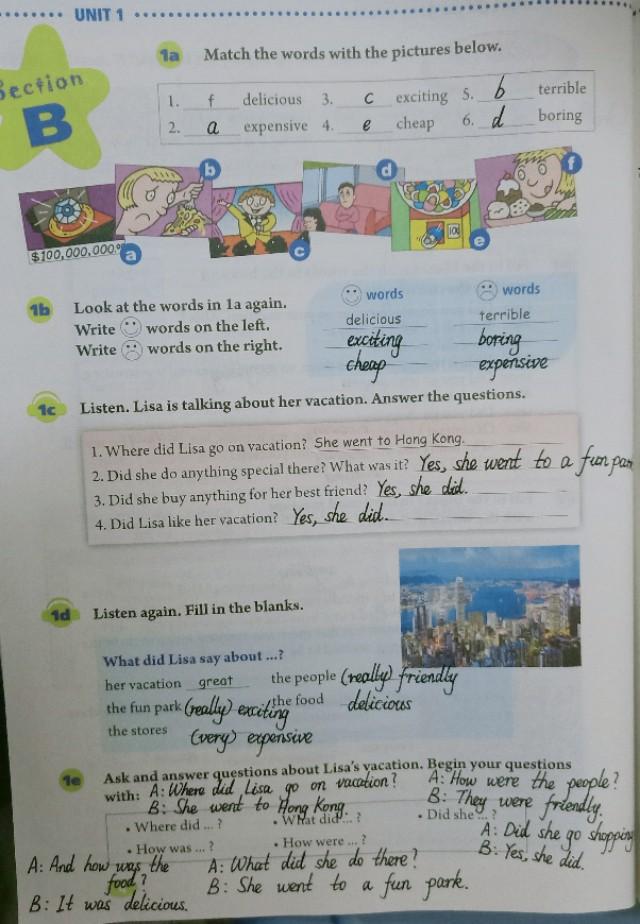 UNIT 1
Section
B
1a Match the words with the pictures below.
1. f delicious 3. c exciting 5. b terrible
2. a expensive 4. e cheap 6. d boring
b
d
f
$100,000,000.00
a
c
e
1b Look at the words in 1a again.
Write words on the left.
Write words on the right.
words
delicious
exciting
cheap
words
terrible
boring
expensive
1c Listen. Lisa is talking about her vacation. Answer the questions.
1. Where did Lisa go on vacation? She went to Hong Kong.
2. Did she do anything special there? What was it? Yes, she went to a fun par
3. Did she buy anything for her best friend? Yes, she did.
4. Did Lisa like her vacation? Yes, she did.
1d Listen again. Fill in the blanks.
What did Lisa say about ...?
her vacation great the people (really) friendly
the fun park (really) exciting the food delicious
the stores (very) expensive
1e Ask and answer questions about Lisa's vacation. Begin your questions
with: A: Where did Lisa go on vacation? A: How were the people?
B: She went to Hong Kong. B: They were friendly.
• Where did ... ? • What did ... ? • Did she ... ?
• How was ... ? • How were ... ?
A: Did she go shopping
B: Yes, she did.
A: And how was the food?
B: It was delicious.
A: What did she do there?
B: She went to a fun park.